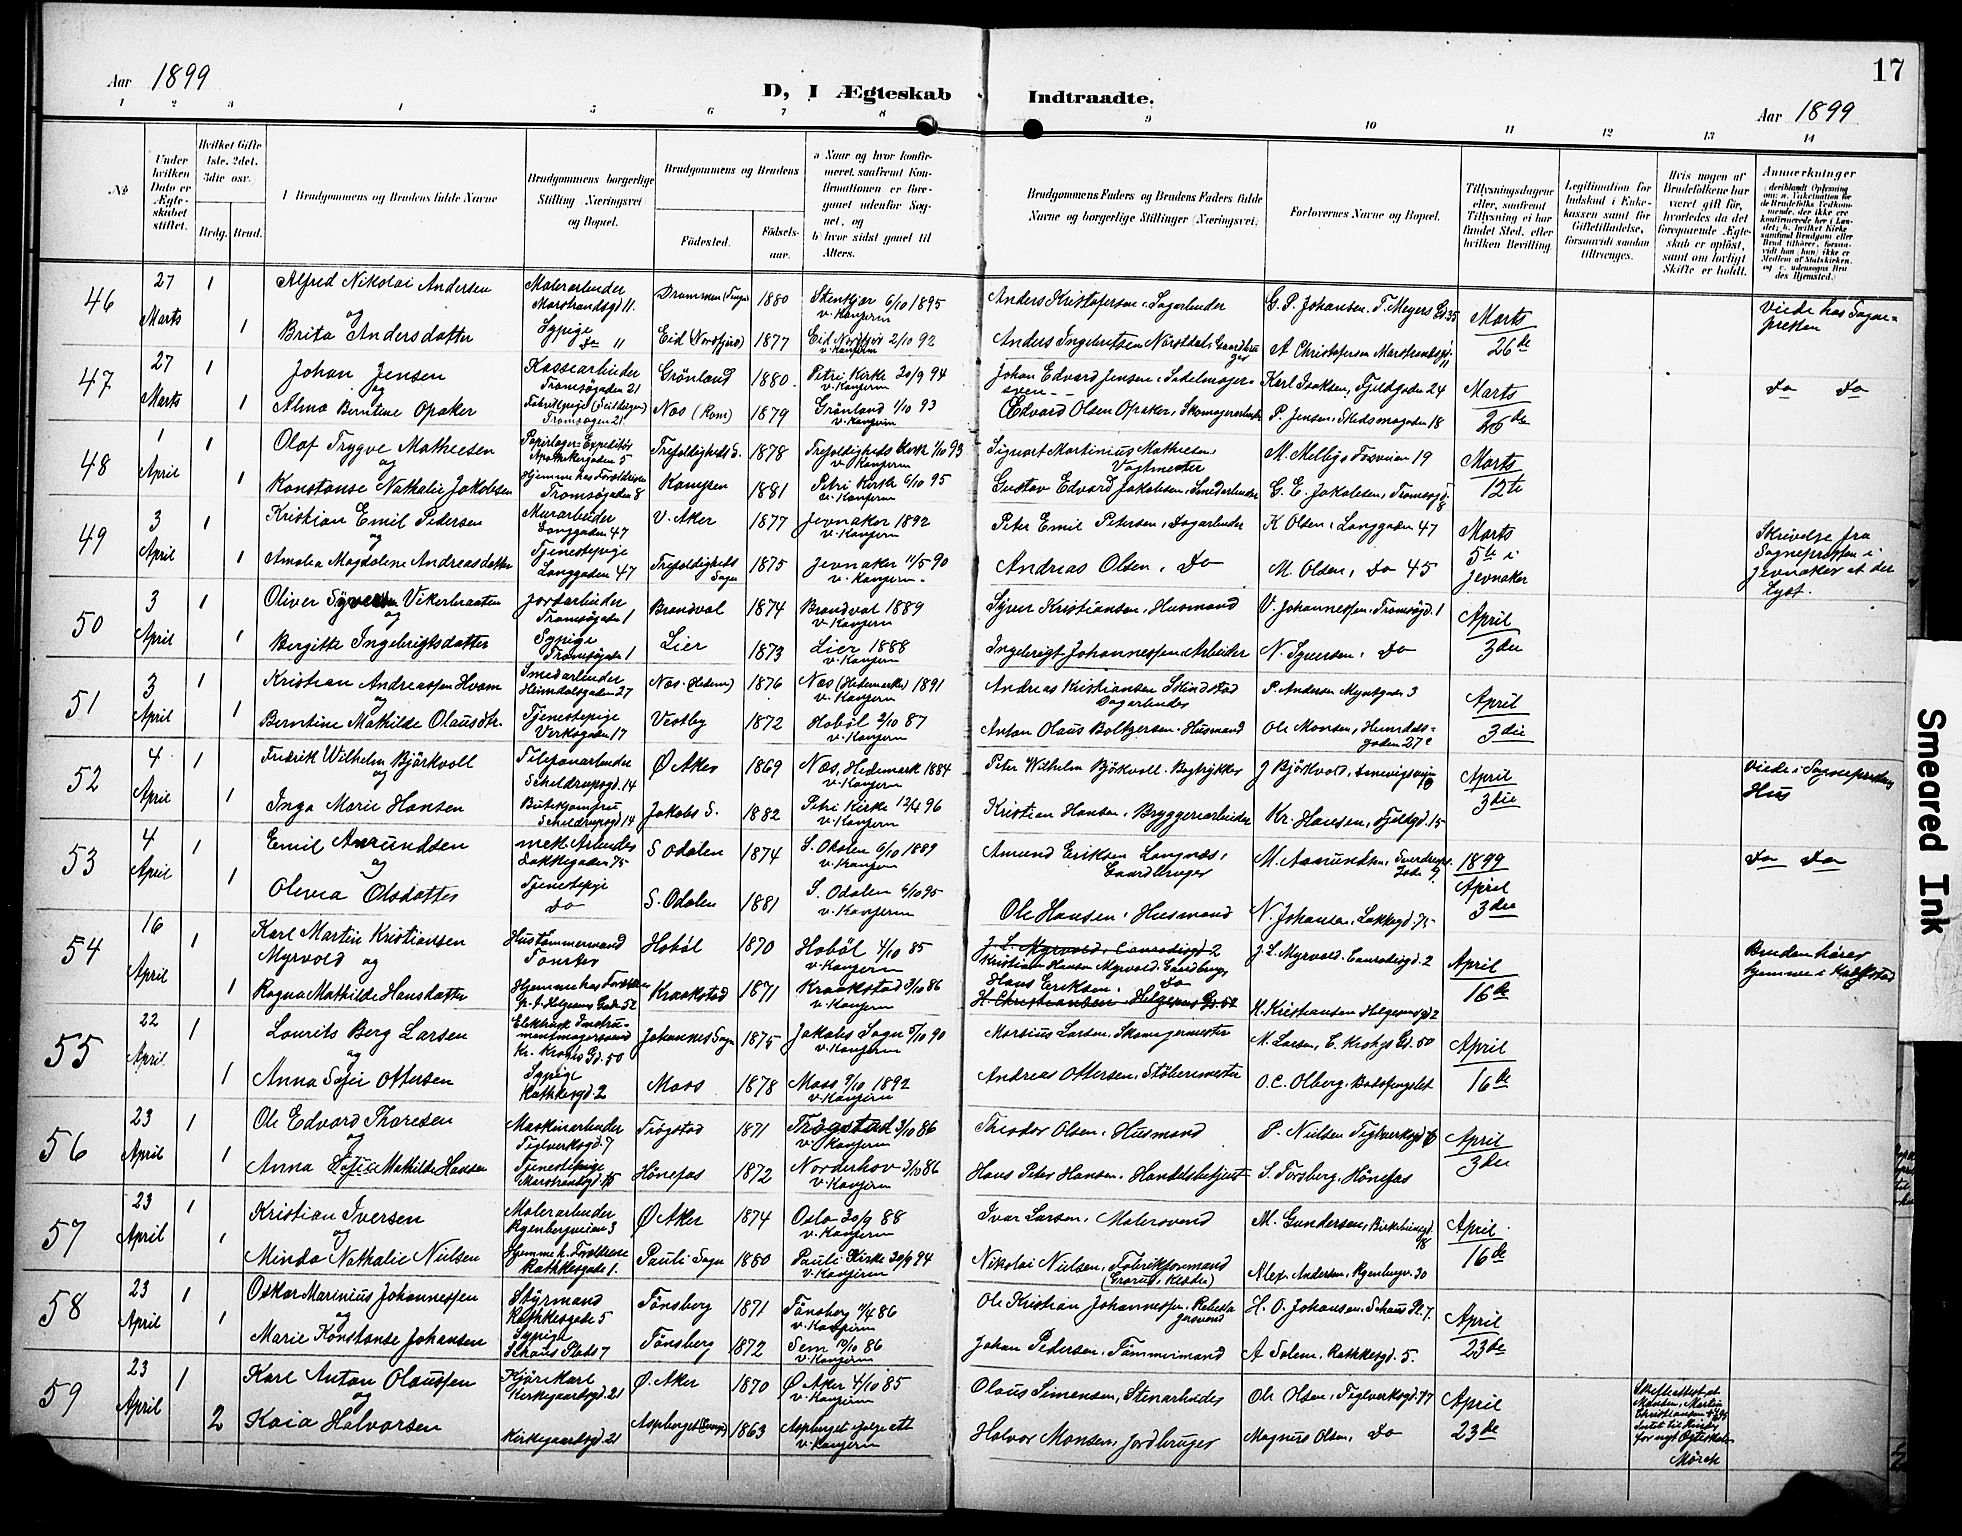 Aar 1899
D, I Ægteskab Indtraadte.
17
Aar 1899
1 2 3 4 5 6 7 8 9 10 11 12 13 14
No
Under hvilken Dato er Ægte- skabet stiftet.
Hvilket Gifte 1ste, 2det, 3die osv.
Brdg. Brud.
Brudgommens og Brudens fulde Navne
Brudgommens borgerlige Stilling (Næringsvei) og Bopæl.
Brudgommens og Brudens
Fødested.
Fødsels- aar.
a Naar og hvor konfir- meret, saafremt Kon- firmationen er fore- gaaet udenfor Sog- net, og
b) hvor sidst gaaet til Alters.
Brudgommens Faders og Brudens Faders fulde Navne og borgerlige Stillinger (Næringsvei)
Forlovernes Navne og Bopæl.
Tillysningsdagene eller, saafremt Tillysning ei har fundet Sted, efter hvilken Bevilling.
Legitimation for Indskud i Enke- kassen samt for Giftetilladelse, forsaavidt saadan tiltrænges.
Hvis nogen af Brudefolkene har været gift før, hvorledes da det foregaaende Ægte- skab er opløst, samt om lovligt Skifte er holdt.
Anmærkninger
46
27 Marts 1
Alfred Nikolai Andersen
og
Malerarbeider
Marstrandsgd 11.
Drammen 1880
Stenkjær 6/10 1895
v. Konfirm
Anders Kristofersen, Sagarbeider
G. P. Johansen, T. Meyers Gd. 35
Marts 26de
Viede hos Sogne-
presten
1 Brita Andersdatter
Sypige
do 11
Eid (Nordfjord) 1877
Eid Nordfjor 2/10 92
v. Konfirm
Anders Ingebritsen Nørstdal, Gaardbru
ger
A Christofersen Marstrandsgd.
11
47
27 Marts 1
Johan Jensen
og
Kassearbeider
Tromsøgaden 21
Grönland 1880
Petri Kirke 20/9 94
v. Konfirm
Johan Edvard Jensen, Sadelmager-
sven
Karl Isaksen, Fjeldgaden 24
Marts 26de
Do Do
1 Alma Berntine Opaker
Tromsøgaden 21
Nes (Rom) 1879
Grönland 1/10 93
v. Konfirm
Edvard Olsen Opaker, Skomagerarbeider
P. Jensen, Hedsmogaden 18
48
1 April 1
Olaf Trygve Mathiesen
og
Papirlager-Expeditör
Apothekergaden 5
Trefoldigheds S. 1878
Trefoldigheds Kirke 1/10 93
v. Konfirm
Sigvart Martinius Mathiesen,
Vagtmester
M. Melbye Fosveien 19
Marts 12te
1 Konstanse Nathalie Jakobsen
Hjemme hos Forældrene
Tromsøgaden 8
Kampen 1881
Petri Kirke 6/10 95
v. Konfirm
Gustav Edvard Jakobsen, Smedarbeider
G. E. Jakobsen, Tromsøgd.
8
49
3 April 1
Kristian Emil Pedersen
og
Murarbeider
Langgaden 47
V. Aker 1877
Jevnaker 1892
v. Konfirm
Peter Emil Petersen, Dagarbeider
K Olsen, Langgaden 47
Marts 5te i Jevnaker
Skrivelse fra
Sognepresten i
Jevnaker at der
Lyst.
1 Amalia Magdalene Andreasdatter
Tjenestepige
Langgaden 47
Trefoldigheds
Sogn 1875
Jevnaker 11/5 90
v. Konfirm.
Andreas Olsen, Do
M. Olsen, Do 45
50
3 April 1
Oliver Syversen Vikerbraaten
og
Jordarbeider
Tromsøgaden 1
Brandval 1874
Brandval 1889
v. Konfirm
Syver Kristiansen, Husmand
V. Johannessen, Tromsøgd. 1
April 3die
1 Bergitte Ingebrigtsdatter
Sypige
Tromsøgaden 1
Lier 1873
Lier 1888
v. Konfirm
Ingebrigt Johannessen, Arbeider
N. Syversen, Do
51
3 April 1
Kristian Andreassen Hvam
og
Smedarbeider
Heimdalsgaden 27
Nes (Hedem) 1876
Nes (Hedemarken) 1891
v. Konfirm
Andreas Kristiansen Skindstad
Dagarbeider
P. Andersen Myntgaden 3
April 3die
1 Berntine Mathilde Olausdtr.
Tjenestepige
Verksgaden 17
Vestby 1872
Hobøl 2/10 87
v. Konfirm
Anton Olaus Boltzersen, Husmand
Ole Monsen, Heimdals-
gaden 27c
52
4 April 1
Fredrik Wilhelm Björkvoll
og
Telefonarbeider
Scheldrupsgd. 14
Ø Aker 1869
Nes, Hedemark 1884
v. Konfirm
Peter Wilhelm Björkvoll, Bogtrykker
J Björkvold,
April 3die
Viede i Sognepresten
Hus
1 Inga Marie Hansen
Butikjomfru
Scheldrupsgd 14
Jakobs S. 1882
Petri Kirke 12/4 96
v. Konfirm
Kristian Hansen, Bryggeriarbeider
Kr. Hansen, Fjeldgd. 15
53
4 April 1
Emil Amundsen
og
mek. Arbeider
Lakkegaden 75
S Odalen 1874
S. Odalen 6/10 1889
v. Konfirm
Amund Eriksen Langnæs,
Gaardbruger
M. Aamundsen, Sverdrups.
Gade 9
1899
April 3die
Do Do
1 Olivia Olsdatter
Tjenestepige
Do
S. Odalen 1881
S. Odalen 6/10 95
v. Konfirm
Ole Hansen, Husmand
N. Johansen, Lakkegd. 75
54
16 April 1
Karl Martin Kristiansen
Myrvold og
Hustömmermand
Tomter
Hobøl 1870
Hobøl 4/10 85
v. Konfirm
J. L. Myrvold, Conradisgd 2
Kristian Hansen Myrvold, Gaardbruger
J. L. Myrvold, Conradisgd. 2
April 16de
Bruden hører
hjemme i Krakstad
1 Ragna Mathilde Hansdatter
Hjemme hos Forældre
Kraakstad 1871
Kraakstad 3/10 86
v. Konfirm
Hans Eriksen, Do
H. Christiansen, Helgesens Gd. 52
K. Kristiansen Helgesensgd 2
55
22 April 1
Laurits Berg Larsen
og
Elektrisk Instru-
mentmagersvend
Kr. Krohs Gd. 50
Johannes Sogn 1875
Jakobs Sogn 5/10 90
v. Konfirm
Marius Larsen, Skomagermester
M. Larsen, C. Krohgs Gd. 50
April 16de
1 Anna Sofie Ottersen
Sypige
Rathkesgd. 2
Moss 1878
Moss 9/10 1892
v. Konfirm
Andreas Ottersen, Støberimester
O. C. Olberg, Bodsfengslet
56
23 April 1
Ole Edvard Thoresen
og
Maskinarbeider
Teglverksgd. 7
Trøgstad 1871
Trøgstad 3/10 86
v. Konfirm
Theodor Olsen, Husmand
P. Nielsen Teglverksgd
April 3die
1 Anna Sofie Mathilde Hansen
Tjenestepige
Marstrandsgd. 15
Hönefos 1872
Norderhov 3/10 86
v. Konfirm
Hans Peter Hansen, Handelsbetjent
S. Forsberg, Hönefos
57
23 April 1
Kristian Iversen
og
Malerarbeider
Ryenbergveien 3
Ø Aker 1874
Oslo 30/9 88
v. Konfirm
Ivar Larsen, Malersvend
M. Gundersen, Birkebeinergd.
18
April 16de
1 Minda Nathalie Nielsen
Hjemme h. Forældrene
Rathkesgade 1.
Pauli Sogn 1880
Pauli Kirke 30/9 94
v. Konfirm
Nikolai Nielsen, Fabrikformand
Alex. Andersen, Ryenbergv. 30
58
23 April 1
Oskar Marinius Johannessen
og
Styrmand
Rathkesgade 5
Tönsberg 1871
Tönsberg 11/4 86
v. Konfirm
Ole Kristian Johannessen, Rebsla
gersvend
H. O. Johansen, Schaus Pl. 7.
April 23de
1 Marie Konstanse Johansen
Sypige
Schaus Plads 7
Tönsberg 1872
Sem 10/10 86
v. Konfirm
Johan Pedersen, Tömmermand
A Solem, Rathkesgd. 5.
59
23 April 1
Karl Anton Olaussen
og
Kjørekarl
Kirkegaardsgd. 21
Ø. Aker 1870
Ø Aker 4/10 85
v. Konfirm
Olaus Simensen, Stenarbeider
Ole Olsen, Teglverksgd. 17
April 23de
Skifteattest at
Manden, Martin
Christiansen
for nyt Ægteskab
Mörch
2 Kaia Halvorsen
Kirkegaardsgd. 21
Aspberget 1863
Aspberget ifølge att
v. Konfirm
Halvor Monsen, Jordbruger
Magnus Olsen, Do
Smeared Ink